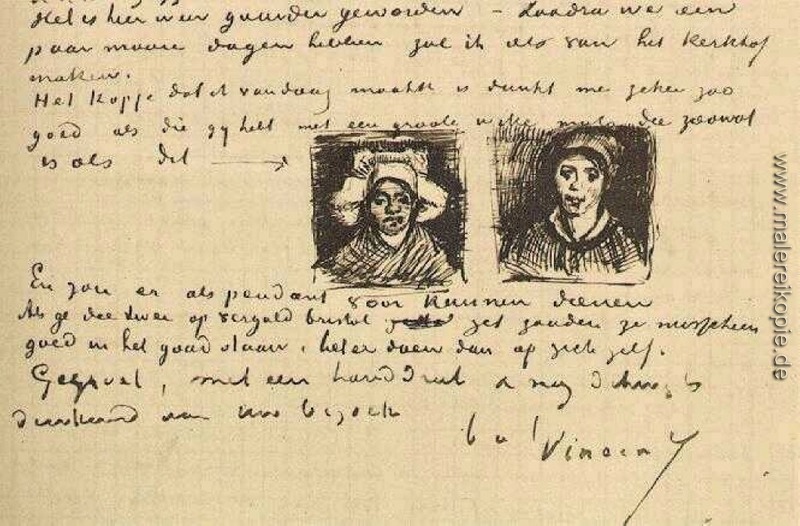 Het is hier weer geworden – Zoodra we een
paar mooie dagen hebben zal ik iets van het kerkhof
maken.
Het kopje dat ik vandaag maakte is dunkt me zeker zoo
goed als die gy hebt met een groote witte muts die zoowat
is als dit
En zou er als pendant voor kunnen dienen
Als ge die twee op verguld bristol zet zouden ze misschien
goed in het goud staan, beter doen dan op zich zelf.
Gegroet, met een handdruk & nog
dankend van Uw bezoek
Vincent
www.malereikopie.de